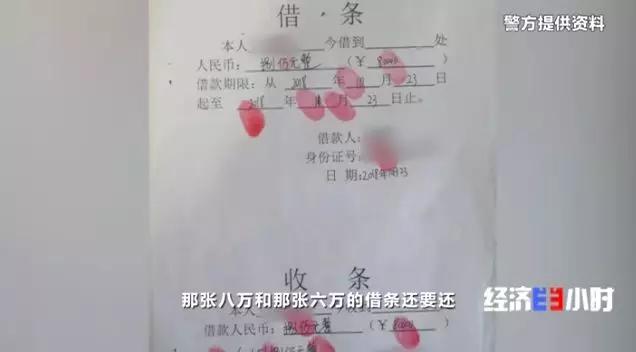 警方提供资料
借·条
本人 今借到 处
人民币: 捌佰元整 (¥ 8000 )
借款期限: 从 2018 年 月 23 日
起至 2018 年 月 23 日止。
借款人:
身份证号:
日 期: 2018年 月23
收 条
那张八万和那张六万的借条还要还
经济半小时
借款人民币: 捌佰元整 (¥ 8000 )